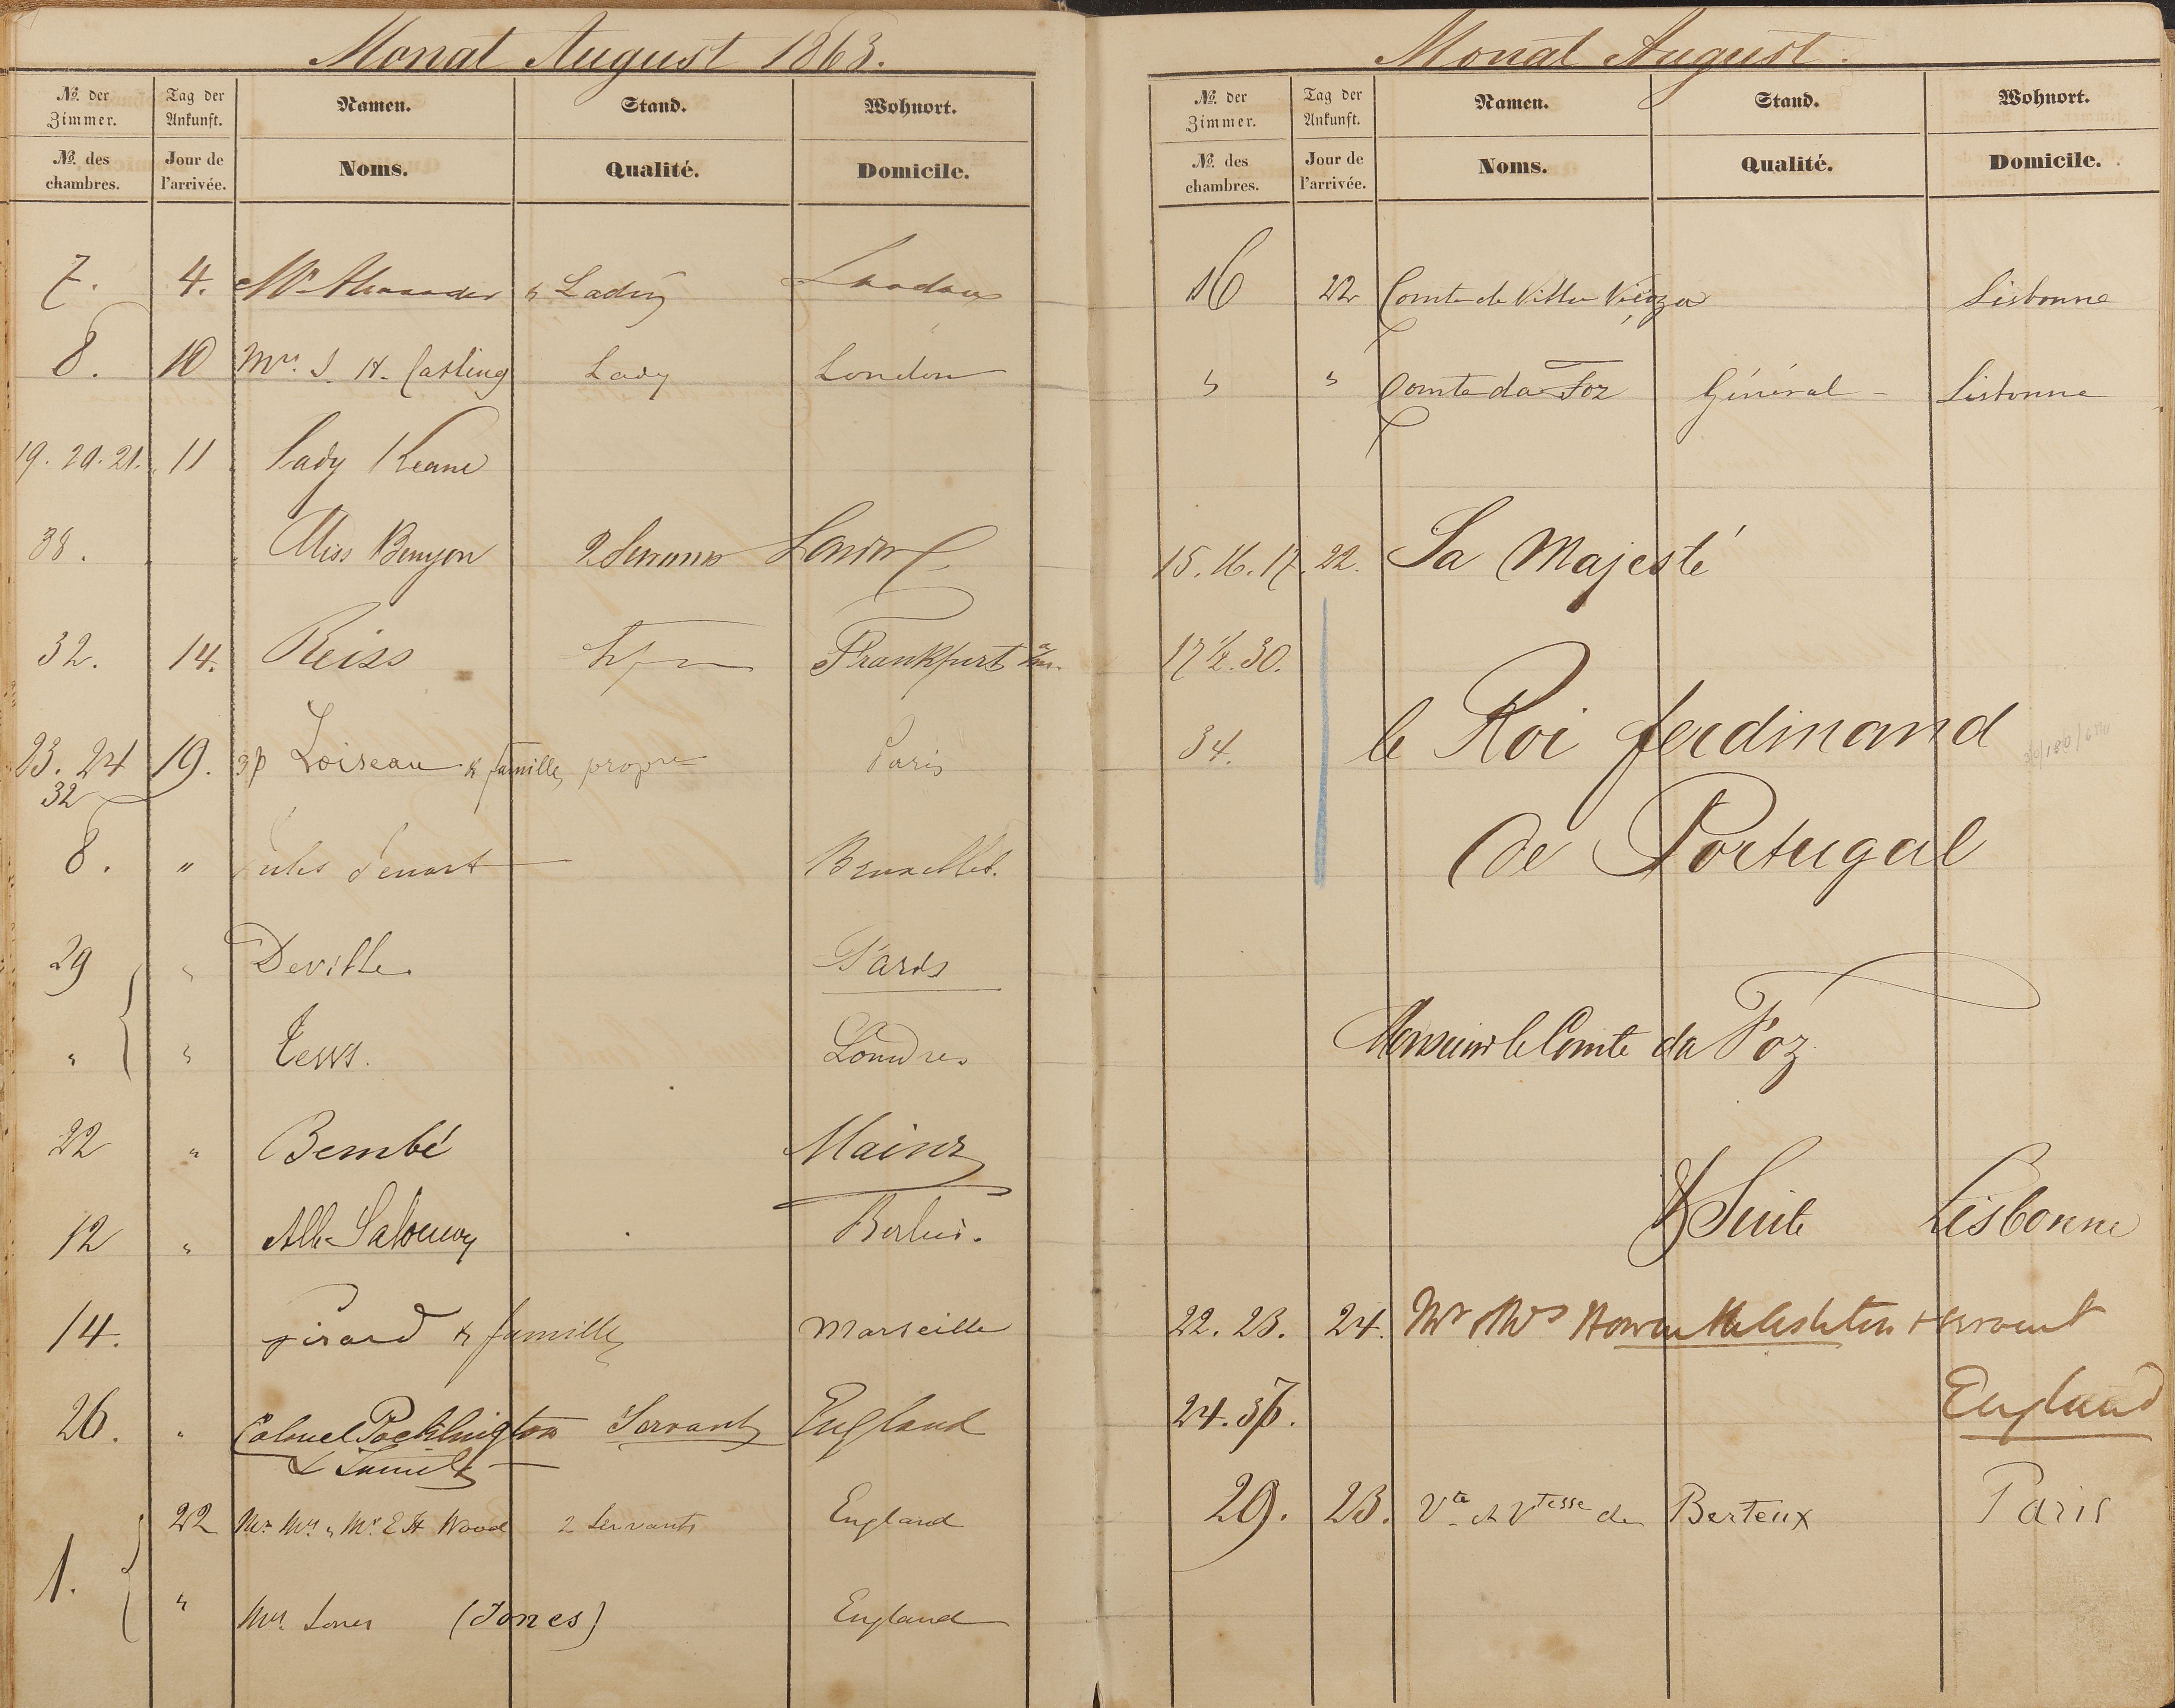 Monat August 1863.
№. der Zimmer. Tag der Ankunft. Namen. Stand. Wohnort.
№. des chambres. Jour de l'arrivée. Noms. Qualité. Domicile.
7. 4. Mr Alexander & Lady London
8. 10 Mrs. J. H. Lady London
19. 20. 21. 11 Lady Keane
38. Miss Benyon 2 Servants London
32. 14. Reiss Frankfurt a/m.
23. 24 19. 3p Loiseau & famille propre Paris
32
8. " Jules Bruxelles.
29 " Deville. Paris
" " Londres
22 " Bembé Mainz
12 " Alb. Salomon Berlin.
14. Girard & famille Marseille
26. " Colonel Pocklington Servant England
& Family
22 Mr. Mrs. & Mr. E H Wood 2 Servants England
1.
" Mrs. Jones (Jones) England
Monat August.
№. der Zimmer. Tag der Ankunft. Namen. Stand. Wohnort.
№. des chambres. Jour de l'arrivée. Noms. Qualité. Domicile.
16 22 Comte de Villa Viçoza Lisbonne
" " Comte da Foz Général - Lisbonne
15. 16. 17. 22. Sa Majesté
17 1/2. 30.
34. le Roi ferdinand
de Portugal
Monsieur le Comte da Foz
& Suite Lisbonne
22. 23. 24. Mr & Mrs + servant
24. 36. England
29. 23. Vte et Vtesse de Berteux Paris